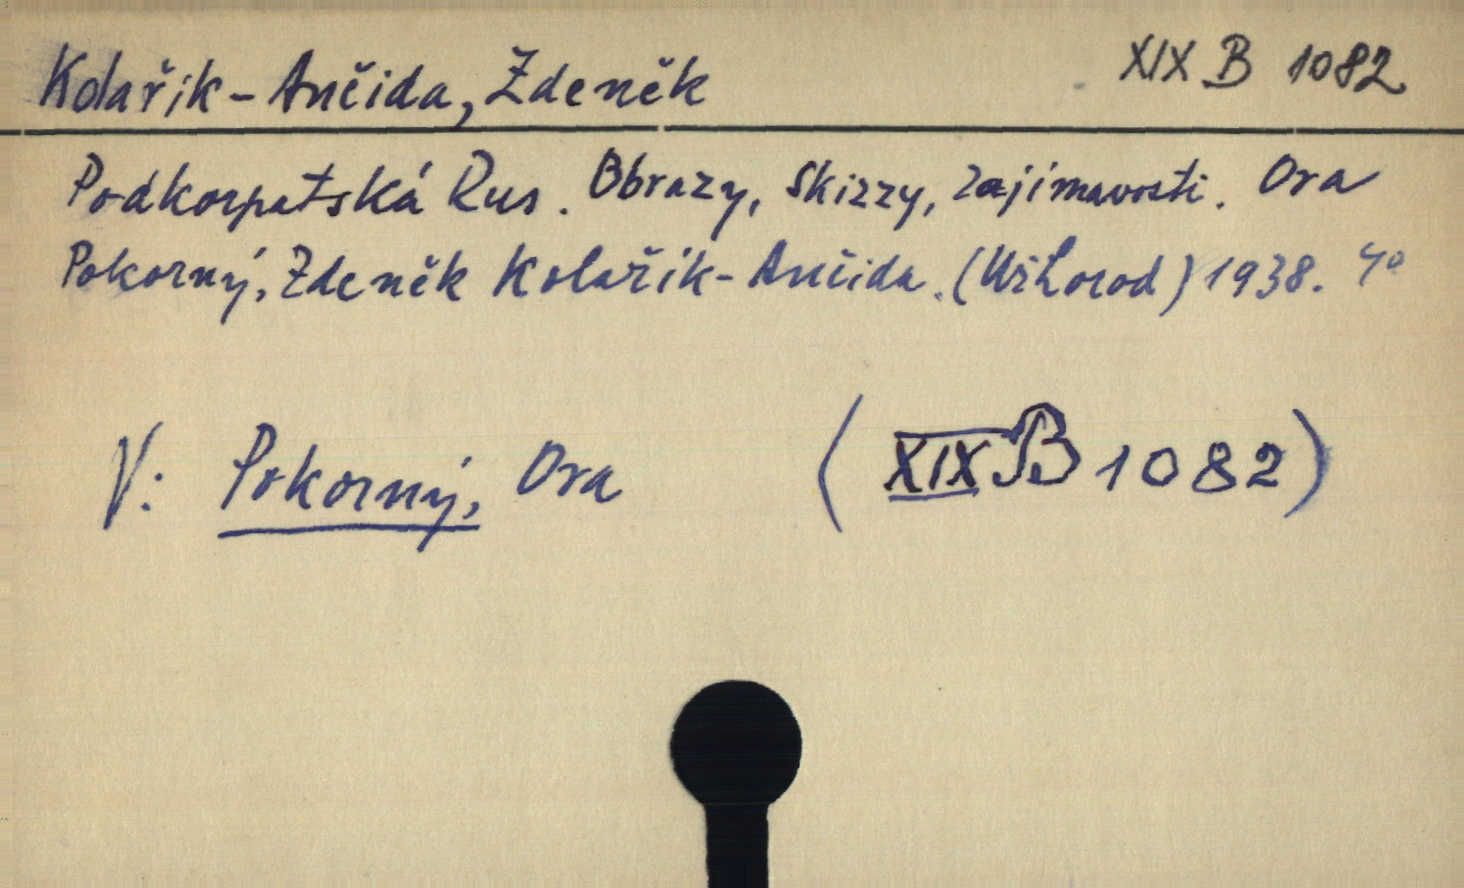 Kolařik-Ančida, Ždeněk XIX B 1082
Podkorpatská Rus. Obrazy, Skizzy, Zajímavosti. Ora
Pokorný, Zdeněk Kolařík-Ančida. (Užhorod) 1938. 4°
V: Pokorný, Ora (XIX B 1082)